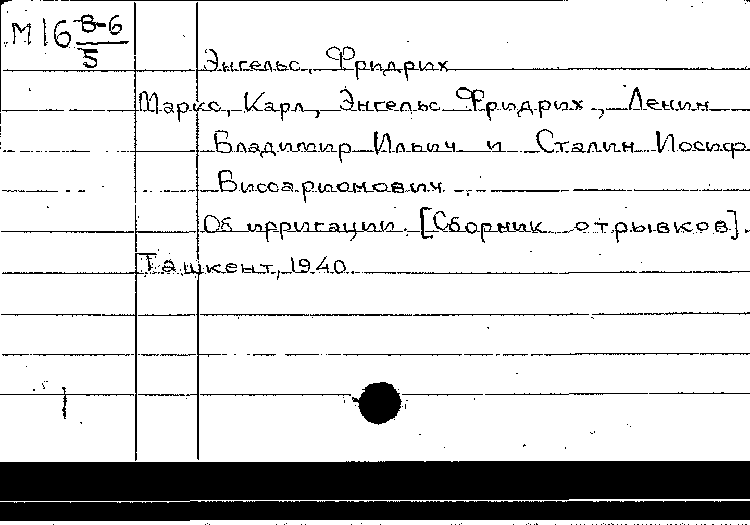 М16 8-6
5
Энгельс, Фридрих
Маркс, Карл, Энгельс Фридрих, Ленин
Владимир Ильич и Сталин Иосиф
Виссарионович.
Об ирригации. [Сборник отрывков].
Ташкент, 1940.